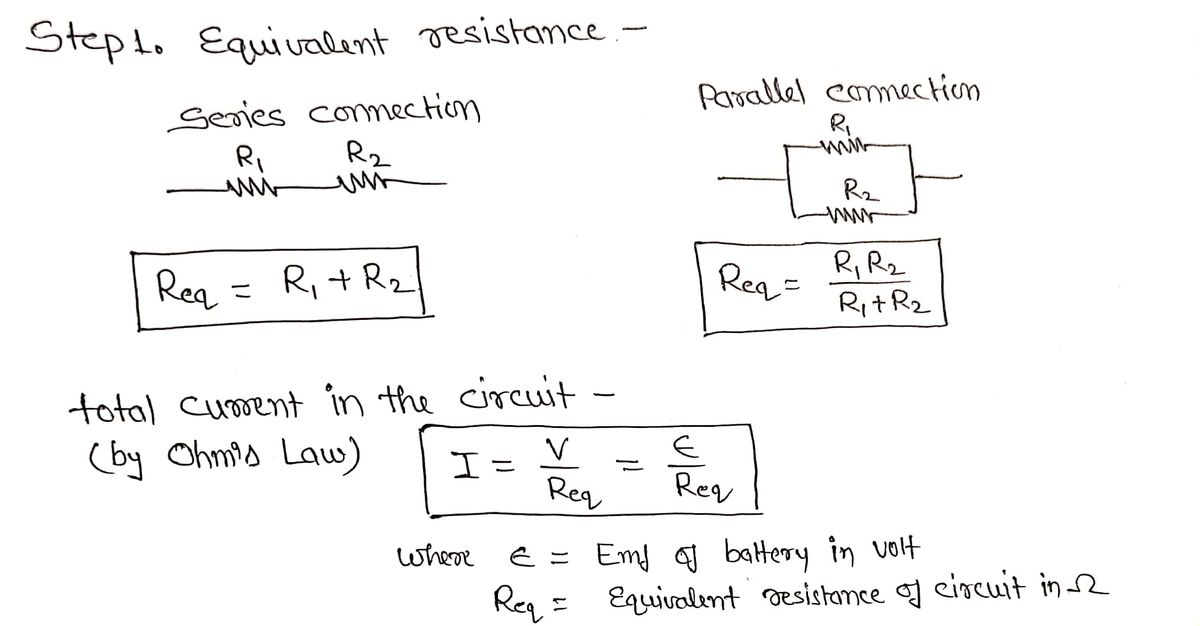 Step 1. Equivalent resistance. -
Series connection
R₁ R₂
Req = R₁ + R₂
Parallel connection
R₁
R₂
Req = R₁R₂ / R₁+R₂
total current in the circuit -
(by Ohm's Law)
I = V / Req = ϵ / Req
where ϵ = Emf of battery in volt
Req = Equivalent resistance of circuit in Ω